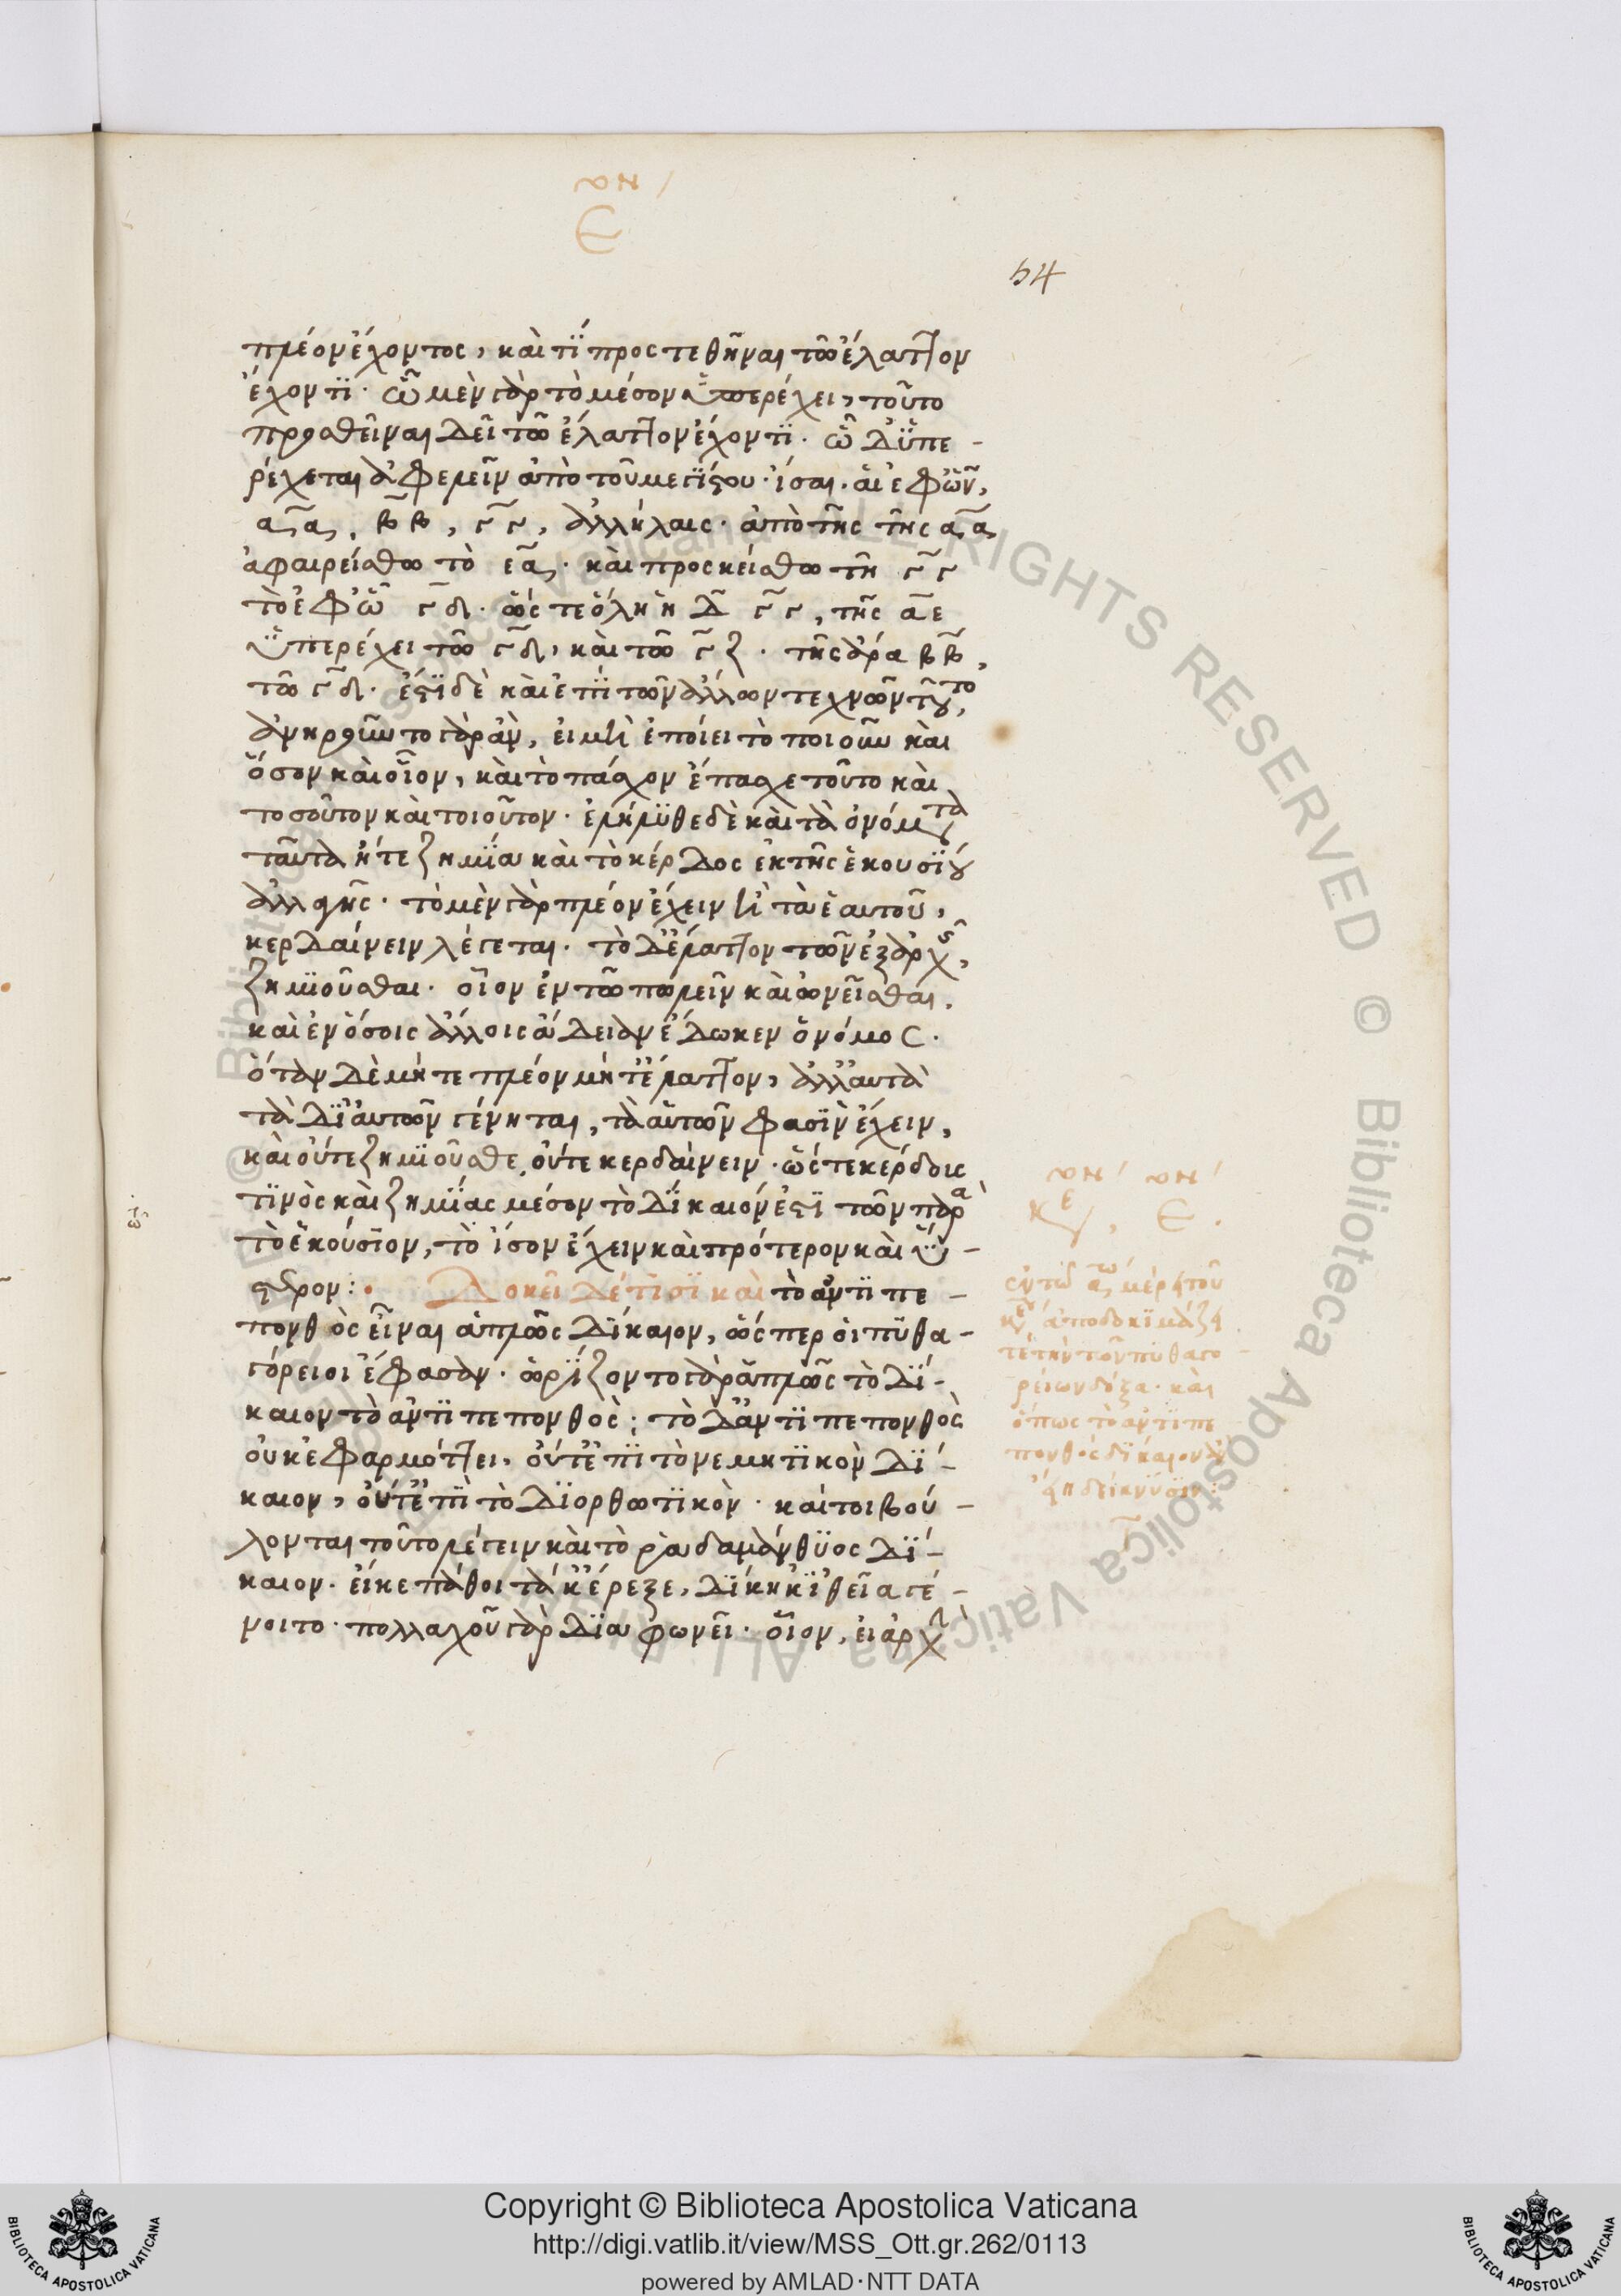 Ε
54
πλέον ἔχοντος, καὶ τί προστεθῆναι τῶ ἔλαττον
ἔχοντι· ὧ μὲν γὰρ τὸ μέσον ὑπερέχει, τοῦτο
προσθεῖναι δεῖ τῶ ἔλαττον ἔχοντι· ὧ δ' ὑπε -
ρέχεται ἀφελεῖν ἀπὸ τοῦ μεγίστου· ἴσαι αἱ ἐφ' ὧν,
αα, ββ, γγ, ἀλλήλαις· ἀπὸ τῆς τῆς αα
ἀφαιρείσθω τὸ εα· καὶ προσκείσθω τῆ γγ
τὸ ἐφ' ὧ γδ· ὥστε ὅλη ἡ δ γγ, τῆς αε
ὑπερέχει τῶ γδ, καὶ τῶ γζ· τῆς ἄρα ββ,
τῶ γδ· ἔστι δὲ καὶ ἐπὶ τῶν ἄλλων τεχνῶν τοῦτο,
ἀνηροῦντο γὰρ ἂν, εἰ μὴ ἐποίει τὸ ποιοῦν καὶ
ὅσον καὶ οἷον, καὶ τὸ πάσχον ἔπασχε τοῦτο καὶ
τοσοῦτον καὶ τοιοῦτον· ἐλήλυθε δὲ καὶ τὰ ὀνόματα
ταῦτα ἥ τε ζημία καὶ τὸ κέρδος ἐκ τῆς ἑκουσίου
ἀλλαγῆς· τὸ μὲν γὰρ πλέον ἔχειν ἢ τὰ ἑαυτοῦ,
κερδαίνειν λέγεται· τὸ δ' ἔλαττον τῶν ἐξ ἀρχῆς,
ζημιοῦσθαι· οἷον ἐν τῶ πωλεῖν καὶ ὠνεῖσθαι,
καὶ ἐν ὅσοις ἄλλοις ἄδειαν ἔδωκεν ὁ νόμος·
ὅταν δὲ μήτε πλέον μήτ' ἔλαττον, ἀλλ' αὐτὰ
τὰ δι' αὐτῶν γένηται, τὰ αὑτῶν φασὶν ἔχειν,
καὶ οὔτε ζημιοῦσθε, οὔτε κερδαίνειν· ὥστε κέρδους
τινὸς καὶ ζημίας μέσον τὸ δίκαιόν ἐστι τῶν παρὰ
τὸ ἑκούσιον, τὸ ἴσον ἔχειν καὶ πρότερον καὶ ὕ -
στερον: Δοκεῖ δέ τισι καὶ τὸ ἀντιπε -
πονθὸς εἶναι ἁπλῶς δίκαιον, ὥσπερ οἱ πυθα -
γόρειοι ἔφασαν· ὡρίζοντο γὰρ ἁπλῶς τὸ δί -
καιον τὸ ἀντιπεπονθὸς· τὸ δ' ἀντιπεπονθὸς
οὐκ ἐφαρμόττει, οὔτ' ἐπὶ τὸ νεμητικὸν δί -
καιον, οὔτ' ἐπὶ τὸ διορθωτικὸν· καίτοι βού -
λονται τοῦτο λέγειν καὶ τὸ ῥαδαμάνθυος δί -
καιον· εἴκε πάθοι τά κ' ἔρεξε, δίκη κ' ἰθεῖα γέ -
νοιτο· πολλαχοῦ γὰρ διαφωνεῖ· οἷον, εἰ ἀρχὴν
ἀποδοκιμάζει
τε τὴν τῶν πυθαγο -
ρείων δόξα· καὶ
ὅπως τὸ ἀντιπε
πονθὸς δίκαιον ἂν
εἴη δείκνυσιν:
Copyright © Biblioteca Apostolica Vaticana
http://digi.vatlib.it/view/MSS_Ott.gr.262/0113
powered by AMLAD·NTT DATA
BIBLIOTECA APOSTOLICA VATICANA
BIBLIOTECA APOSTOLICA VATICANA
© Biblioteca Apostolica Vaticana ALL RIGHTS RESERVED